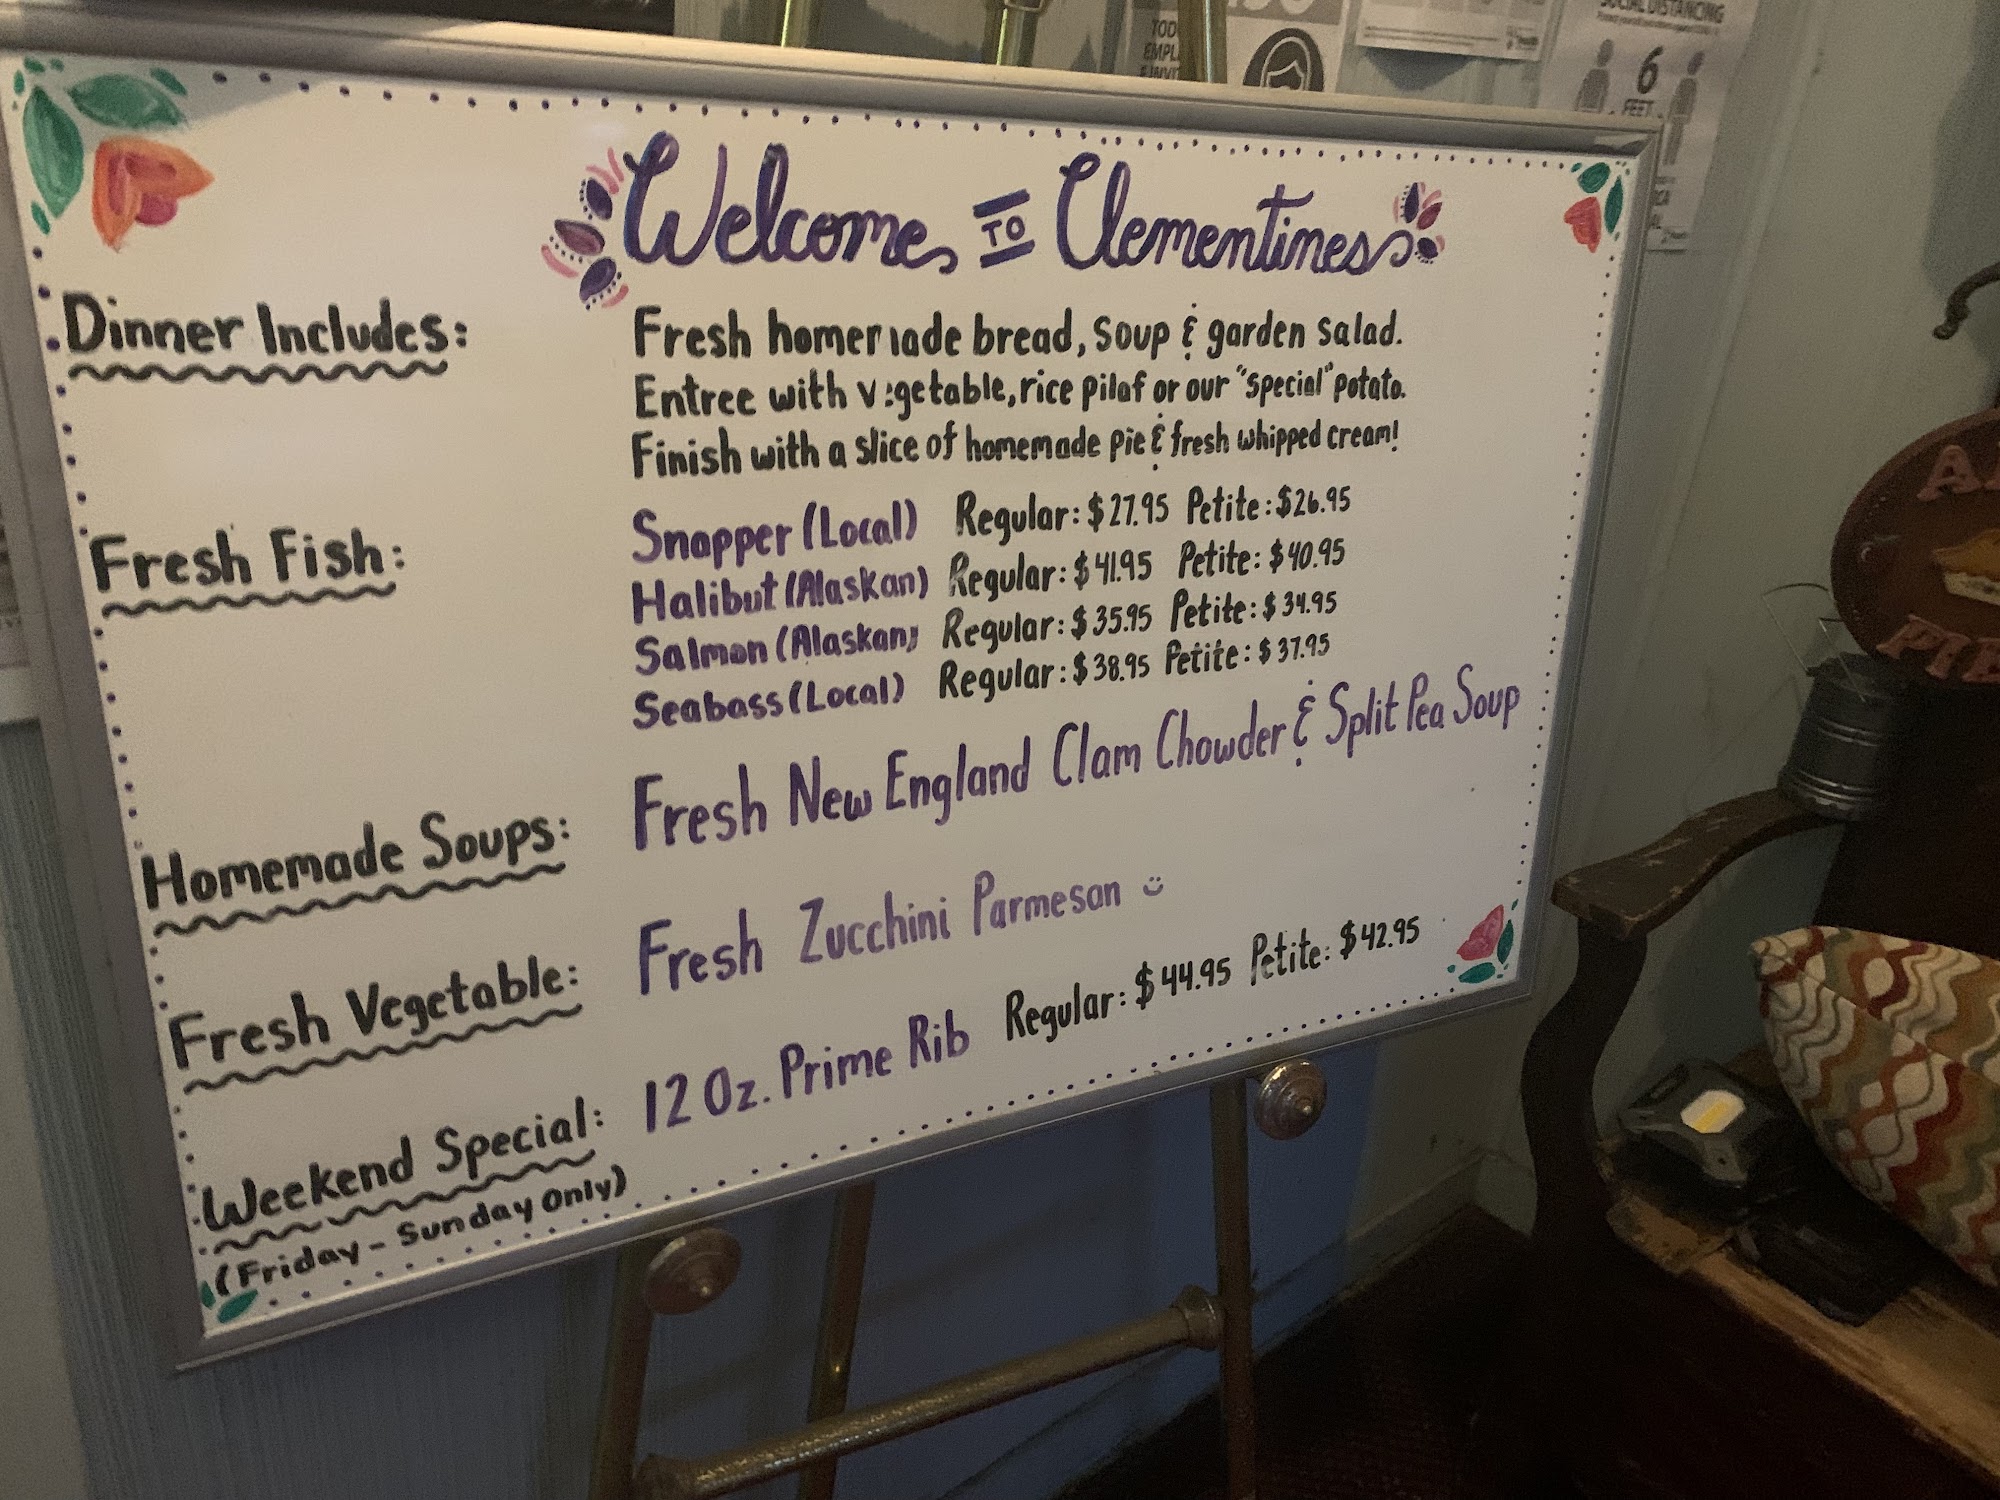 Welcome TO Clementines
Dinner Includes:
Fresh homemade bread, Soup & garden salad.
Entree with vegetable, rice pilaf or our "special" potato.
Finish with a slice of homemade pie & fresh whipped cream!
Fresh Fish:
Snapper (Local) Regular: $27.95 Petite: $26.95
Halibut (Alaskan) Regular: $41.95 Petite: $40.95
Salmon (Alaskan) Regular: $35.95 Petite: $34.95
Seabass (Local) Regular: $38.95 Petite: $37.95
Homemade Soups: Fresh New England Clam Chowder & Split Pea Soup
Fresh Vegetable: Fresh Zucchini Parmesan
Weekend Special: 12 Oz. Prime Rib Regular: $44.95 Petite: $42.95
(Friday - Sunday Only)
SOCIAL DISTANCING
6
FEET